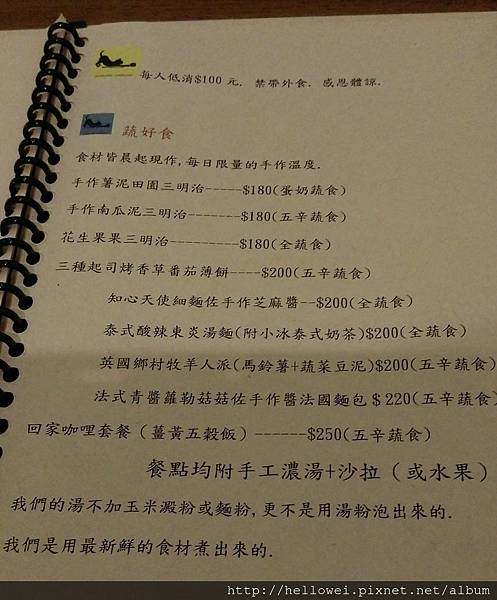 每人低消$100 元. 禁帶外食. 感恩體諒.
蔬好食
食材皆晨起現作,每日限量的手作溫度.
手作薯泥田園三明治-----$180(蛋奶蔬食)
手作南瓜泥三明治-------$180(五辛蔬食)
花生果果三明治----------$180(全蔬食)
三種起司烤香草番茄薄餅----$200(五辛蔬食)
知心天使細麵佐手作芝麻醬--$200(全蔬食)
泰式酸辣東炎湯麵(附小冰泰式奶茶)$200(全蔬食)
英國鄉村牧羊人派(馬鈴薯+蔬菜豆泥)$200(五辛蔬食)
法式青醬蘿勒菇菇佐手作醬法國麵包＄220(五辛蔬食)
回家咖哩套餐（薑黃五穀飯）------$250(五辛蔬食)
餐點均附手工濃湯+沙拉（或水果）
我們的湯不加玉米澱粉或麵粉,更不是用湯粉泡出來的.
我們是用最新鮮的食材煮出來的.
http://hellowei.pixnet.net/album